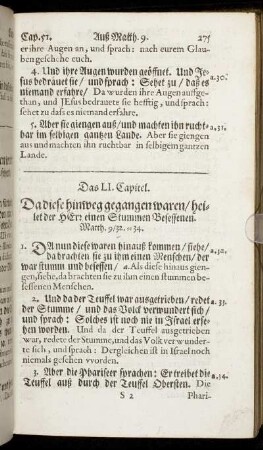 Cap.51. Auß Matth. 9. 275
er ihre Augen an, und sprach: nach eurem Glau-
ben geschehe euch.
4. Und ihre Augen wurden geöffnet. Und Je- a.30.
sus bedrauet sie/ und sprach: Sehet zu/ daß es
niemand erfahre/ Da wurden ihre Augen aufge-
than, und JEsus bedrauete sie hefftig, und sprach:
sehet zu daß es niemand erfahre.
5. Aber sie giengen auß/ und machten ihn rucht- a.31.
bar im selbigen gantzen Lande. Aber sie giengen
aus und machten ihn ruchtbar in selbigem gantzen
Lande.
Das LI. Capitel.
Da diese hinweg gegangen waren/ hei-
let der HErr einen Stummen Besessenen.
Matth. 9/32.=34.
1. DA nun diese waren hinauß kommen/ siehe/ a.32.
da brachten sie zu ihm einen Menschen/ der
war stumm und besessen/ a. Als diese hinaus gien-
gen, siehe, da brachten sie zu ihm einen stummen be-
sessenen Menschen.
2. Und da der Teuffel war ausgetrieben/ redet a.33.
der Stumme/ und das Volck verwundert sich/
und sprach: Solches ist noch nie in Israel erse-
hen worden. Und da der Teuffel ausgetrieben
war, redete der Stumme, und das Volk verwunder-
te sich, und sprach: Dergleichen ist in Israel noch
niemals gesehen worden.
3. Aber die Phariseer sprachen: Er treibet die a.34.
Teuffel auß durch der Teuffel Obersten. Die
S 2 Phari-